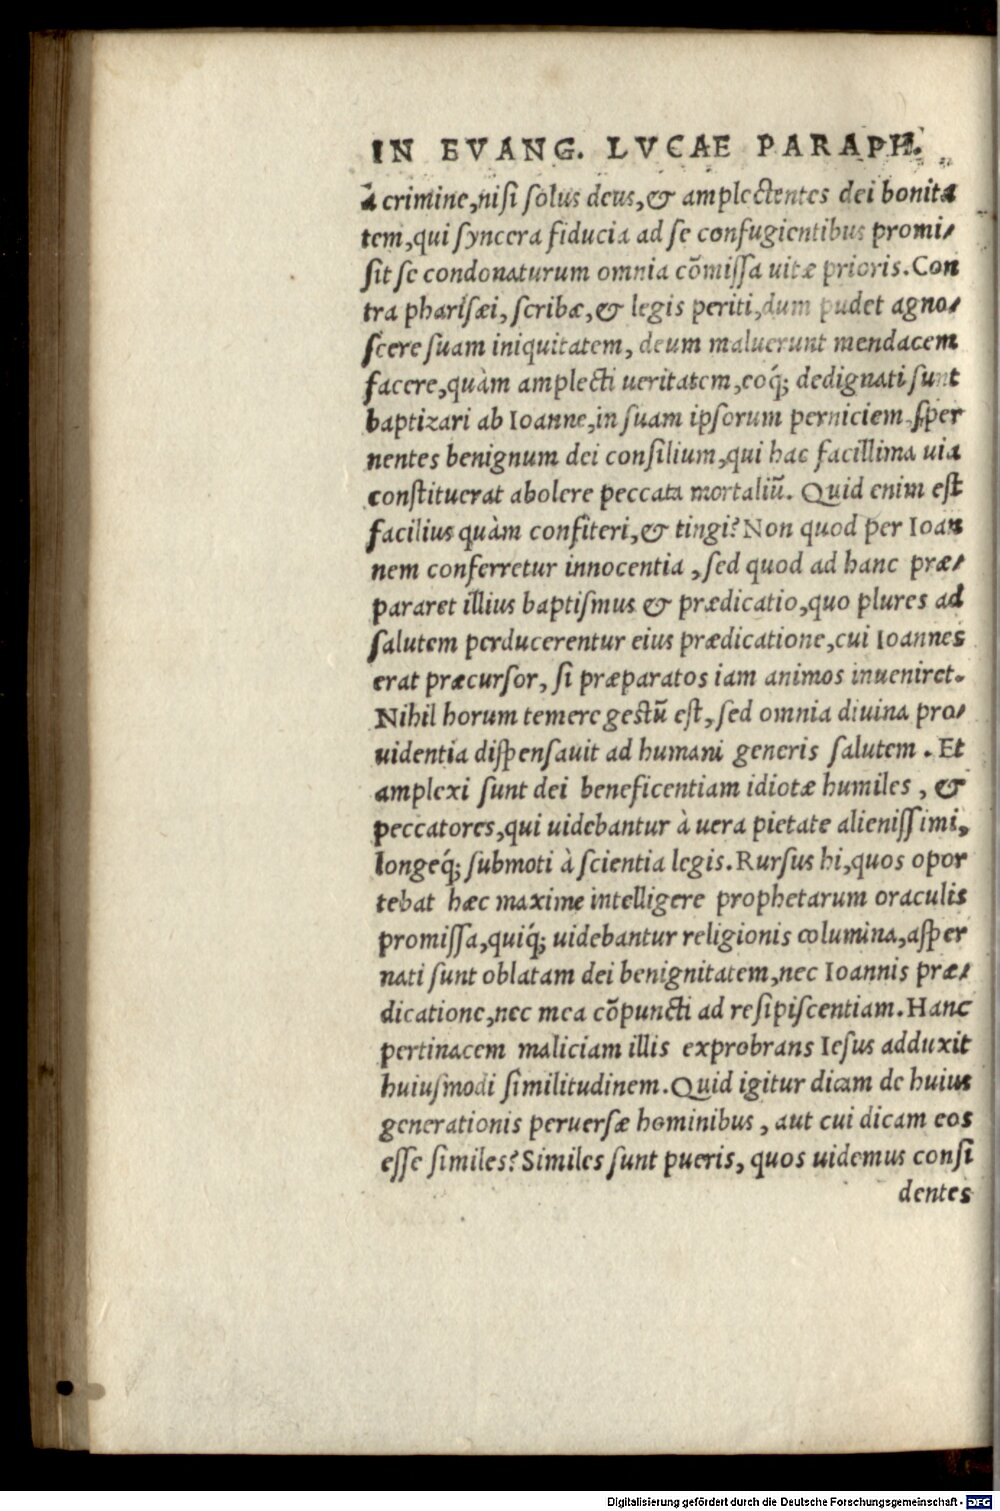 IN EVANG. LVCAE PARAPH.
à crimine,nisi solus deus,& amplectentes dei bonita
tem,qui syncera fiducia ad se confugientibus promi/
sit se condonaturum omnia cõmissa uitæ prioris.Con
tra pharisæi, scribæ,& legis periti,dum pudet agno/
scere suam iniquitatem, deum maluerunt mendacem
facere,quàm amplecti ueritatem,eoq́; dedignati sunt
baptizari ab Ioanne,in suam ipsorum perniciem,sper
nentes benignum dei consilium,qui hac facillima uia
constituerat abolere peccata mortaliũ. Quid enim est
facilius quàm confiteri,& tingi?Non quod per Ioan
nem conferretur innocentia ,sed quod ad hanc præ/
pararet illius baptismus & prædicatio,quo plures ad
salutem perducerentur eius prædicatione,cui Ioannes
erat præcursor, si præparatos iam animos inueniret.
Nihil horum temere gestũ est, sed omnia diuina pro/
uidentia dispensauit ad humani generis salutem . Et
amplexi sunt dei beneficentiam idiotæ humiles , &
peccatores,qui uidebantur à uera pietate alienissimi,
longeq́; submoti à scientia legis.Rursus hi,quos opor
tebat hæc maxime intelligere prophetarum oraculis
promissa,quiq́; uidebantur religionis columina,asper
nati sunt oblatam dei benignitatem,nec Ioannis præ/
dicatione,nec mea cõpuncti ad resipiscentiam.Hanc
pertinacem maliciam illis exprobrans Iesus adduxit
huiusmodi similitudinem.Quid igitur dicam de huius
generationis peruersæ hominibus , aut cui dicam eos
esse similes?Similes sunt pueris, quos uidemus consi
dentes
Digitalisierung gefördert durch die Deutsche Forschungsgemeinschaft - DFG